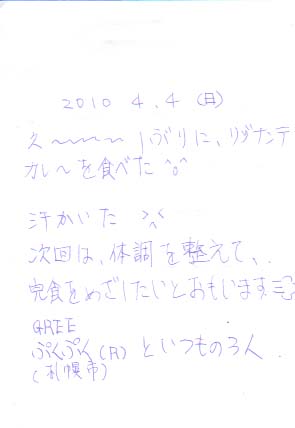 2010 4.4 (日)
久〜〜〜〜しぶりに、リヅナンテ
カレーを食べた ^o^
汗かいた >^<
次回は、体調を整えて、.
完食をめざしたいとおもいます
GREE
ぷくぷく(R) といつもの3人
(札幌市)